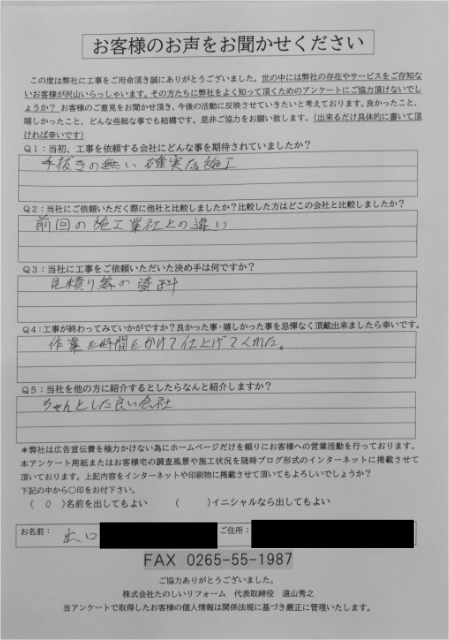 お客様のお声をお聞かせください
この度は弊社に工事をご用命頂き誠にありがとうございました。世の中には弊社の存在やサービスをご存知な
いお客様が沢山いらっしゃいます。その方たちに弊社をよく知って頂くためのアンケートにご協力頂けないでし
ょうか？ お客様のご意見をお聞かせ頂き、今後の活動に反映させていきたいと考えております。良かったこと、
嬉しかったこと、どんな些細な事でも結構です。是非ご協力をお願い致します。（出来るだけ具体的に書いて頂
ければ幸いです）
Q1：当初、工事を依頼する会社にどんな事を期待されていましたか？
手抜きの無い確実な施工
Q2：当社にご依頼いただく際に他社と比較しましたか？比較した方はどこの会社と比較しましたか？
前回の施工業社との違い
Q3：当社に工事をご依頼いただいた決め手は何ですか？
見積り等の資料
Q4：工事が終わってみていかがですか？良かった事・嬉しかった事を忌憚なく頂戴出来ましたら幸いです。
作業を時間をかけて仕上げてくれた。
Q5：当社を他の方に紹介するとしたらなんと紹介しますか？
ちゃんとした良い会社
＊弊社は広告宣伝費を極力かけない為にホームページだけを頼りにお客様への営業活動を行っております。
本アンケート用紙またはお客様宅の調査風景や施工状況を随時ブログ形式のインターネットに掲載させて
頂いております。上記内容をインターネットや印刷物に掲載させて頂いてもよろしいでしょうか？
下記の中から〇印をお付け下さい。
（ 〇 ）名前を出してもよい （ ）イニシャルなら出してもよい
お名前： 出口 ご住所：
FAX 0265-55-1987
ご協力ありがとうございました。
株式会社たのしいリフォーム 代表取締役 遠山秀之
当アンケートで取得したお客様の個人情報は関係法規に基づき厳正に管理いたします。